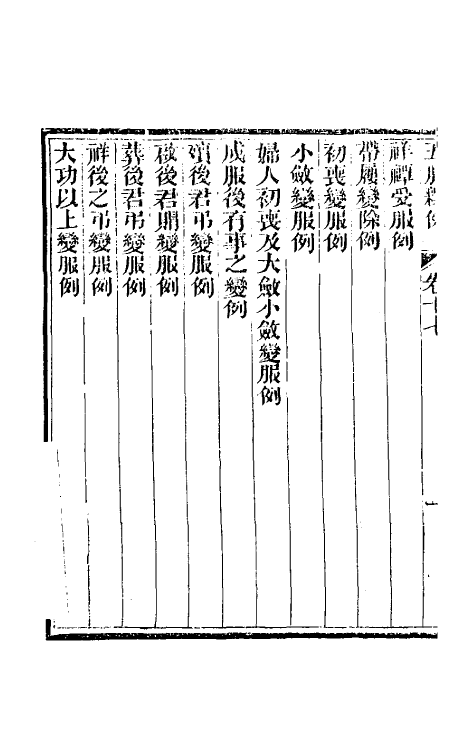 五服釋例 卷十七 一
祥禫受服例
帶屨變除例
初喪變服例
小斂變服例
婦人初喪及大斂小斂變服例
成服後有事之變例
殯後君弔變服例
啟後君賵變服例
葬後君弔變服例
祥後之弔變服例
大功以上變服例